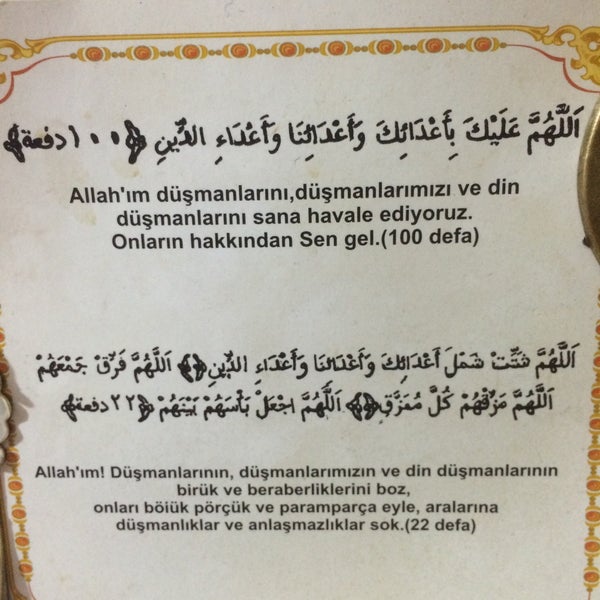 اَللّٰهُمَّ عَلَيْكَ بِأَعْدَائِكَ وَأَعْدَائِنَا وَأَعْدَاءِ الدِّينِ ﴿١٠٠ دفعة﴾
Allah'ım düşmanlarını,düşmanlarımızı ve din
düşmanlarını sana havale ediyoruz.
Onların hakkından Sen gel.(100 defa)
اَللّٰهُمَّ شَتِّتْ شَمْلَ أَعْدَائِكَ وَأَعْدَائِنَا وَأَعْدَاءِ الدِّينِ ﴿﴾ اَللّٰهُمَّ فَرِّقْ جَمْعَهُمْ
اَللّٰهُمَّ مَزِّقْهُمْ كُلَّ مُمَزَّقٍ ﴿﴾ اَللّٰهُمَّ اجْعَلْ بَأْسَهُمْ بَيْنَهُمْ ﴿٢٢ دفعة﴾
Allah'ım! Düşmanlarının, düşmanlarımızın ve din düşmanlarının
birük ve beraberliklerini boz,
onları böiük pörçük ve paramparça eyle, aralarına
düşmanlıklar ve anlaşmazlıklar sok.(22 defa)